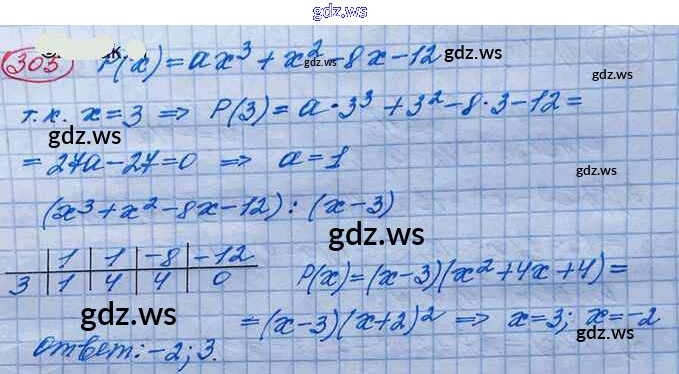 gdz.ws
303 P(x) = ax³ + x² - 8x - 12
gdz.ws
т.к. x = 3 ⇒ P(3) = a·3³ + 3² - 8·3 - 12 =
gdz.ws
gdz.ws
= 27a - 27 = 0 ⇒ a = 1
gdz.ws
(x³ + x² - 8x - 12) : (x - 3)
gdz.ws
1 | 1 | -8 | -12
3 | 1 | 4 | 4 | 0
P(x) = (x - 3)(x² + 4x + 4) =
gdz.ws
gdz.ws
= (x - 3)(x + 2)² ⇒ x = 3; x = -2
gdz.ws
Ответ: -2; 3.
gdz.ws